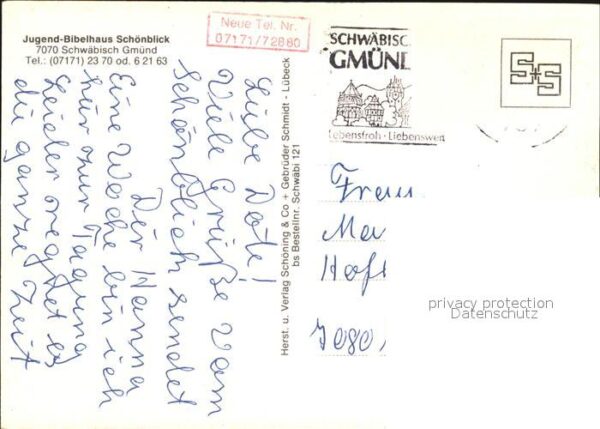 Jugend-Bibelhaus Schönblick
7070 Schwäbisch Gmünd
Tel.: (07171) 23 70 od. 6 21 63
Neue Tel. Nr.
07171/72880
SCHWÄBISC
GMÜND
Lebensfroh · Liebenswert
S+S
Liebe Dote!
Viele Grüße vom
Schönblick sendet
Dir Hanna
Eine Woche bin ich
hier zur Tagung
Leider regnet es
die ganze Zeit
Herst. u. Verlag Schöning & Co + Gebrüder Schmidt · Lübeck
bs Bestellnr. Schwäbi 121
Frau
Ma
Hofs
7080,
privacy protection
Datenschutz